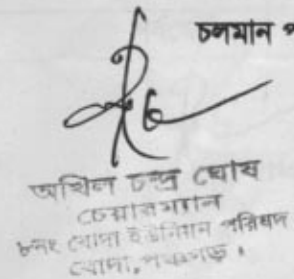 চলমান
অখিল চন্দ্র ঘোষ
চেয়ারম্যান
৮নং বোদা ইউনিয়ন পরিষদ
বোদা, পঞ্চগড়।